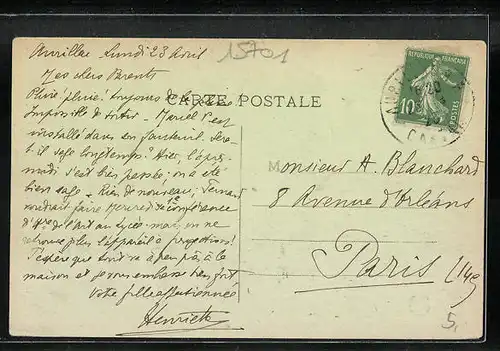 15701
Aurillac Lundi 23 Avril
Mes chers Parents
Pluie! pluie! toujours de la pluie
CARTE POSTALE
Impossible de sortir. Marcel s'est
installé dans un fauteuil. Sera-
t-il sage longtemps? Hier, l'après
midi s'est très passé, on a été
bien sage. Rien de nouveau; Fernand
voudrait faire Mercredi sa conférence
d'Hre de l'Art au Lycée mais on ne
retrouve plus l'appareil à projections!
J'espère que tout va à peu près à la
maison et je vous embrasse bien fort
Votre fille affectionnée
Henriette
REPUBLIQUE FRANÇAISE
10c
POSTES
Monsieur A. Blanchard
8 Avenue d'Orléans
Paris (14e)
5.